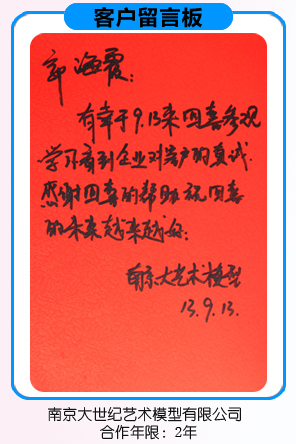 客户留言板
郭海霞:
有幸于9.13来四喜参观
学习看到企业对客户的真诚.
感谢四喜的帮助.祝四喜
的未来越来越好:
南京大艺术模型
13.9.13.
南京大世纪艺术模型有限公司
合作年限：2年